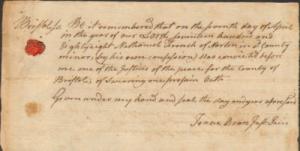 Bristol ss. Be it remembered that on the seventh day of April
in the year of our Lord seventeen hundred and
Eighty eight Nathaniel French of Norton in sd County
minor, (by his own confession) Was convicted before
me one of the Justices of the peace for the County of
Bristol, of Swearing one profain Oath
Given under my hand and seal the day and year aforesaid
Dean Just. Pacis